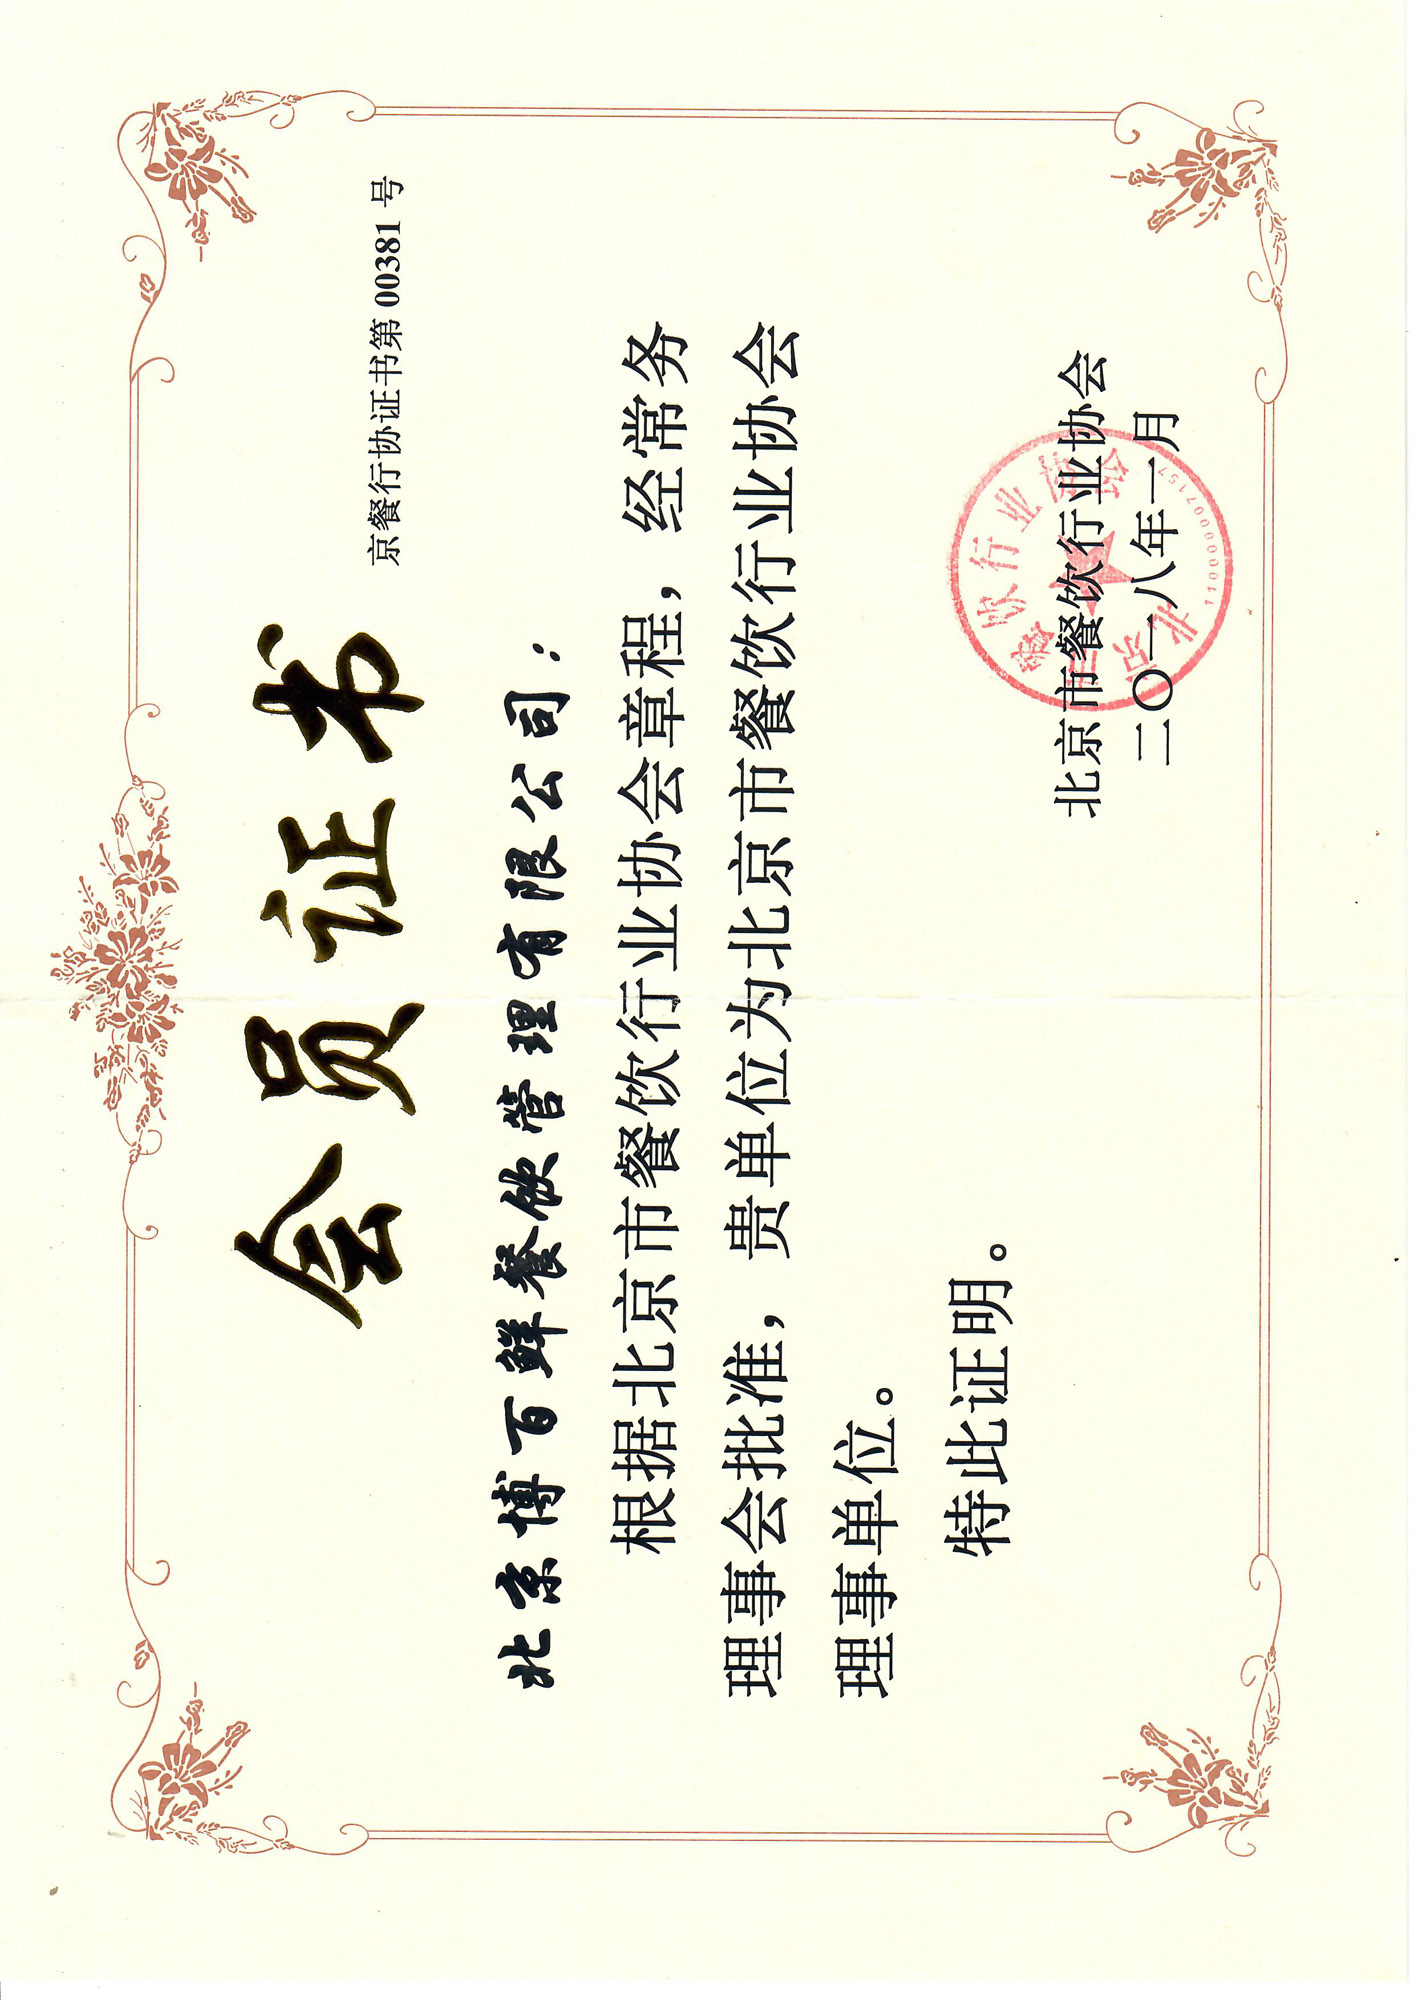 会员证书
京餐行协证书第 00381 号
北京博百鲜餐饮管理有限公司：
根据北京市餐饮行业协会章程，经常务
理事会批准，贵单位为北京市餐饮行业协会
理事单位。
特此证明。
北京市餐饮行业协会
二〇一八年一月
北京市餐饮行业协会
1100000007157